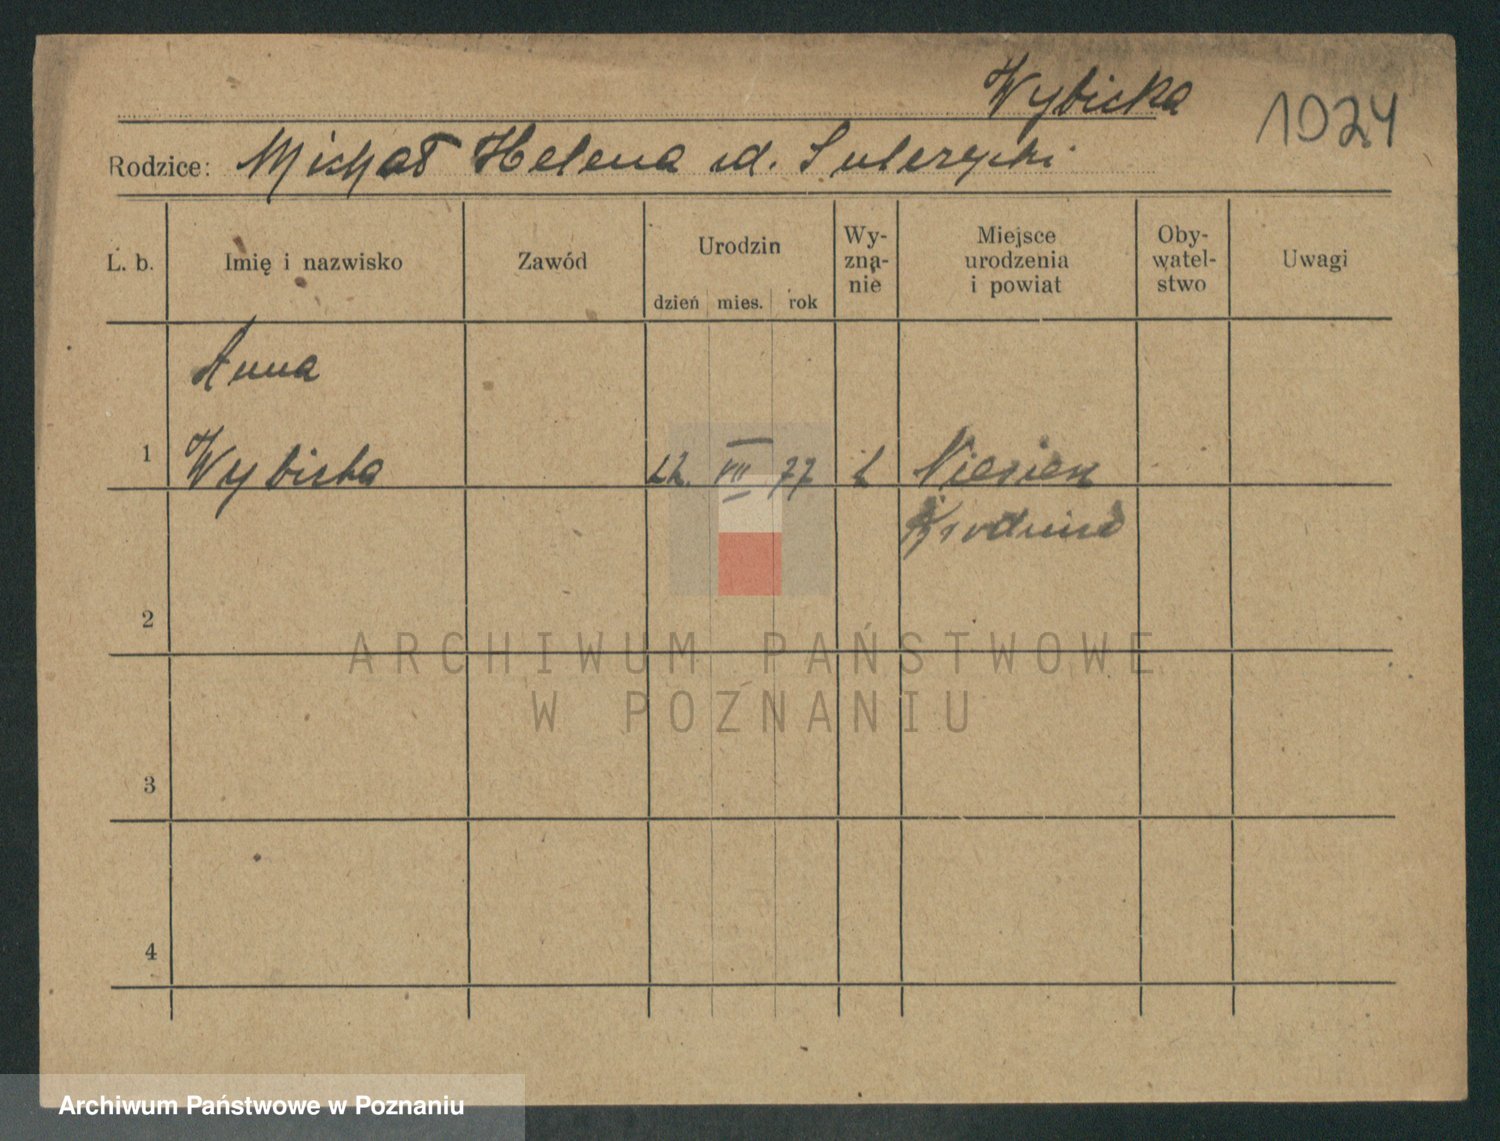 Wybicka
1024
Rodzice: Michał Helena zd. Sulerzycki
L. b.
Imię i nazwisko
Zawód
Urodzin
dzień mies. rok
Wy-
zna-
nie
Miejsce
urodzenia
i powiat
Oby-
watel-
stwo
Uwagi
Anna
1 Wybicka 22. VII 77
2
3
4
ARCHIWUM PAŃSTWOWE
W POZNANIU
Archiwum Państwowe w Poznaniu